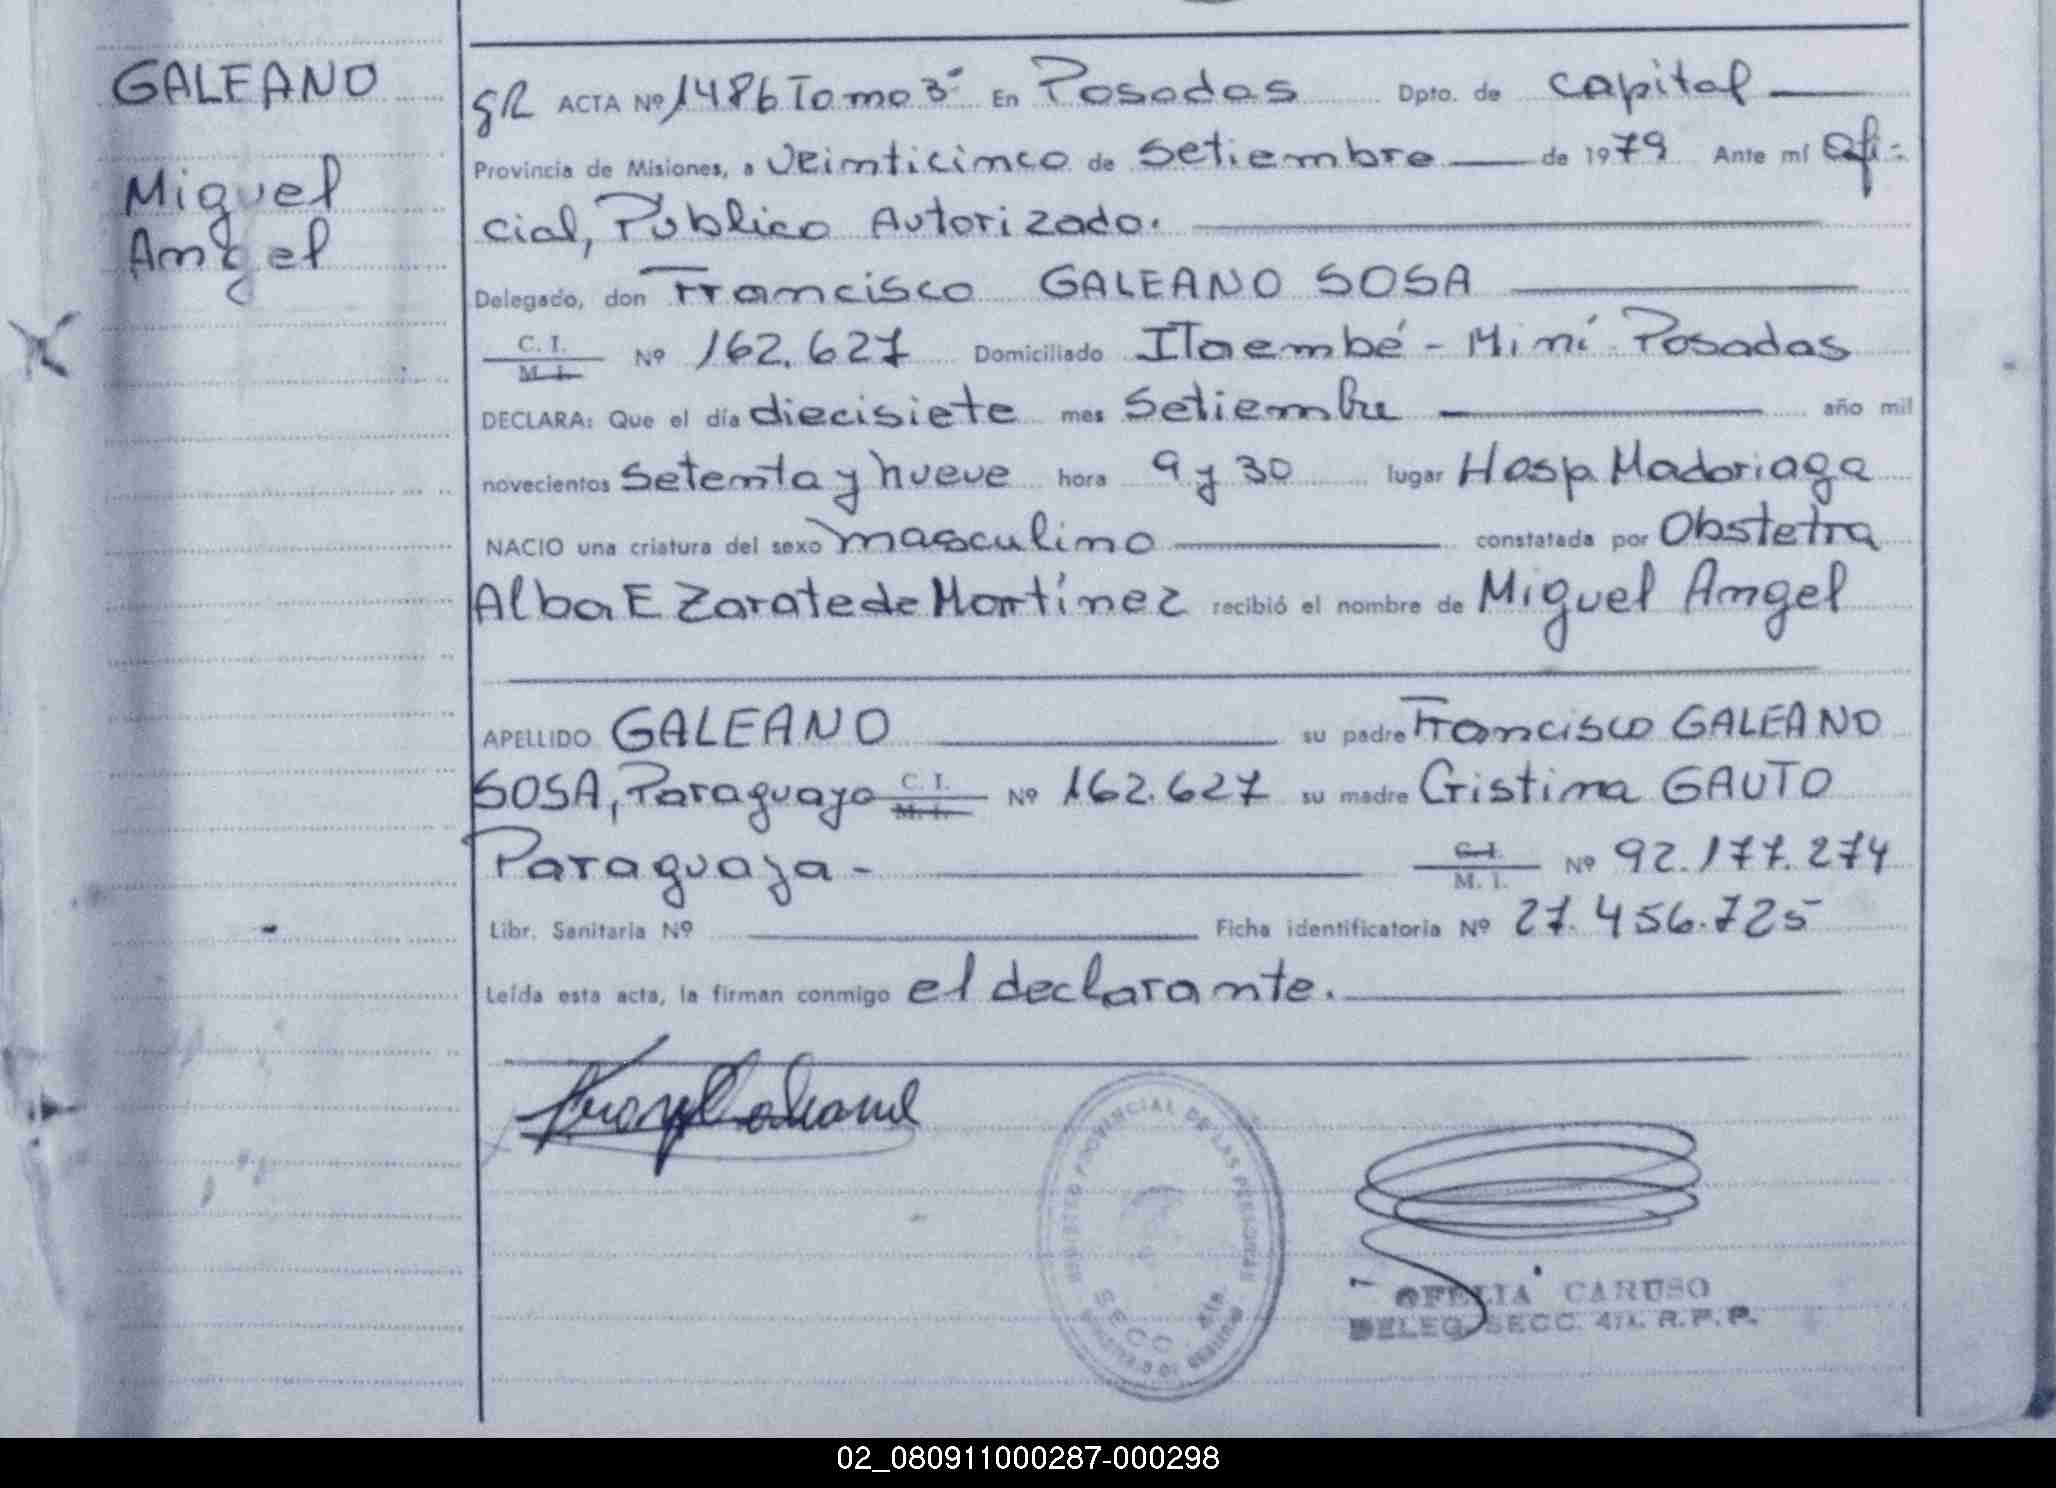 GALEANO
Miguel
Angel
gR ACTA Nº 1486 Tomo 3º En Posadas Dpto. de Capital
Provincia de Misiones, a Veinticinco de Setiembre de 1979 Ante mí Ofi-
cial, Público Autorizado.
Delegado, don Francisco GALEANO SOSA
C. I. M. I. Nº 162.627 Domiciliado Itaembé - Miní - Posadas
DECLARA: Que el día diecisiete mes Setiembre año mil
novecientos Setenta y nueve hora 9 y 30 lugar Hosp. Madariaga
NACIO una criatura del sexo masculino constatada por Obstetra
Alba E Zarate de Martínez recibió el nombre de Miguel Angel
APELLIDO GALEANO su padre Francisco GALEANO
SOSA, Paraguayo C. I. M. I. Nº 162.627 su madre Cristina GAUTO
Paraguaya - C. I. M. I. Nº 92.177.274
Libr. Sanitaria Nº Ficha identificatoria Nº 27.456.725
Leída esta acta, la firman conmigo el declarante.
REGISTRO PROVINCIAL DE LAS PERSONAS
SECC. 4ta.
OFELIA CARUSO
DELEG. SECC. 4ta. R.P.P.
02_080911000287-000298